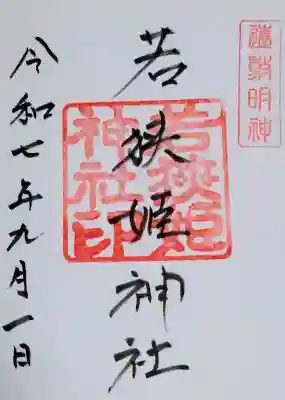 道敷明神
若狭姫神社
若狭姫
神社印
令和七年九月一日